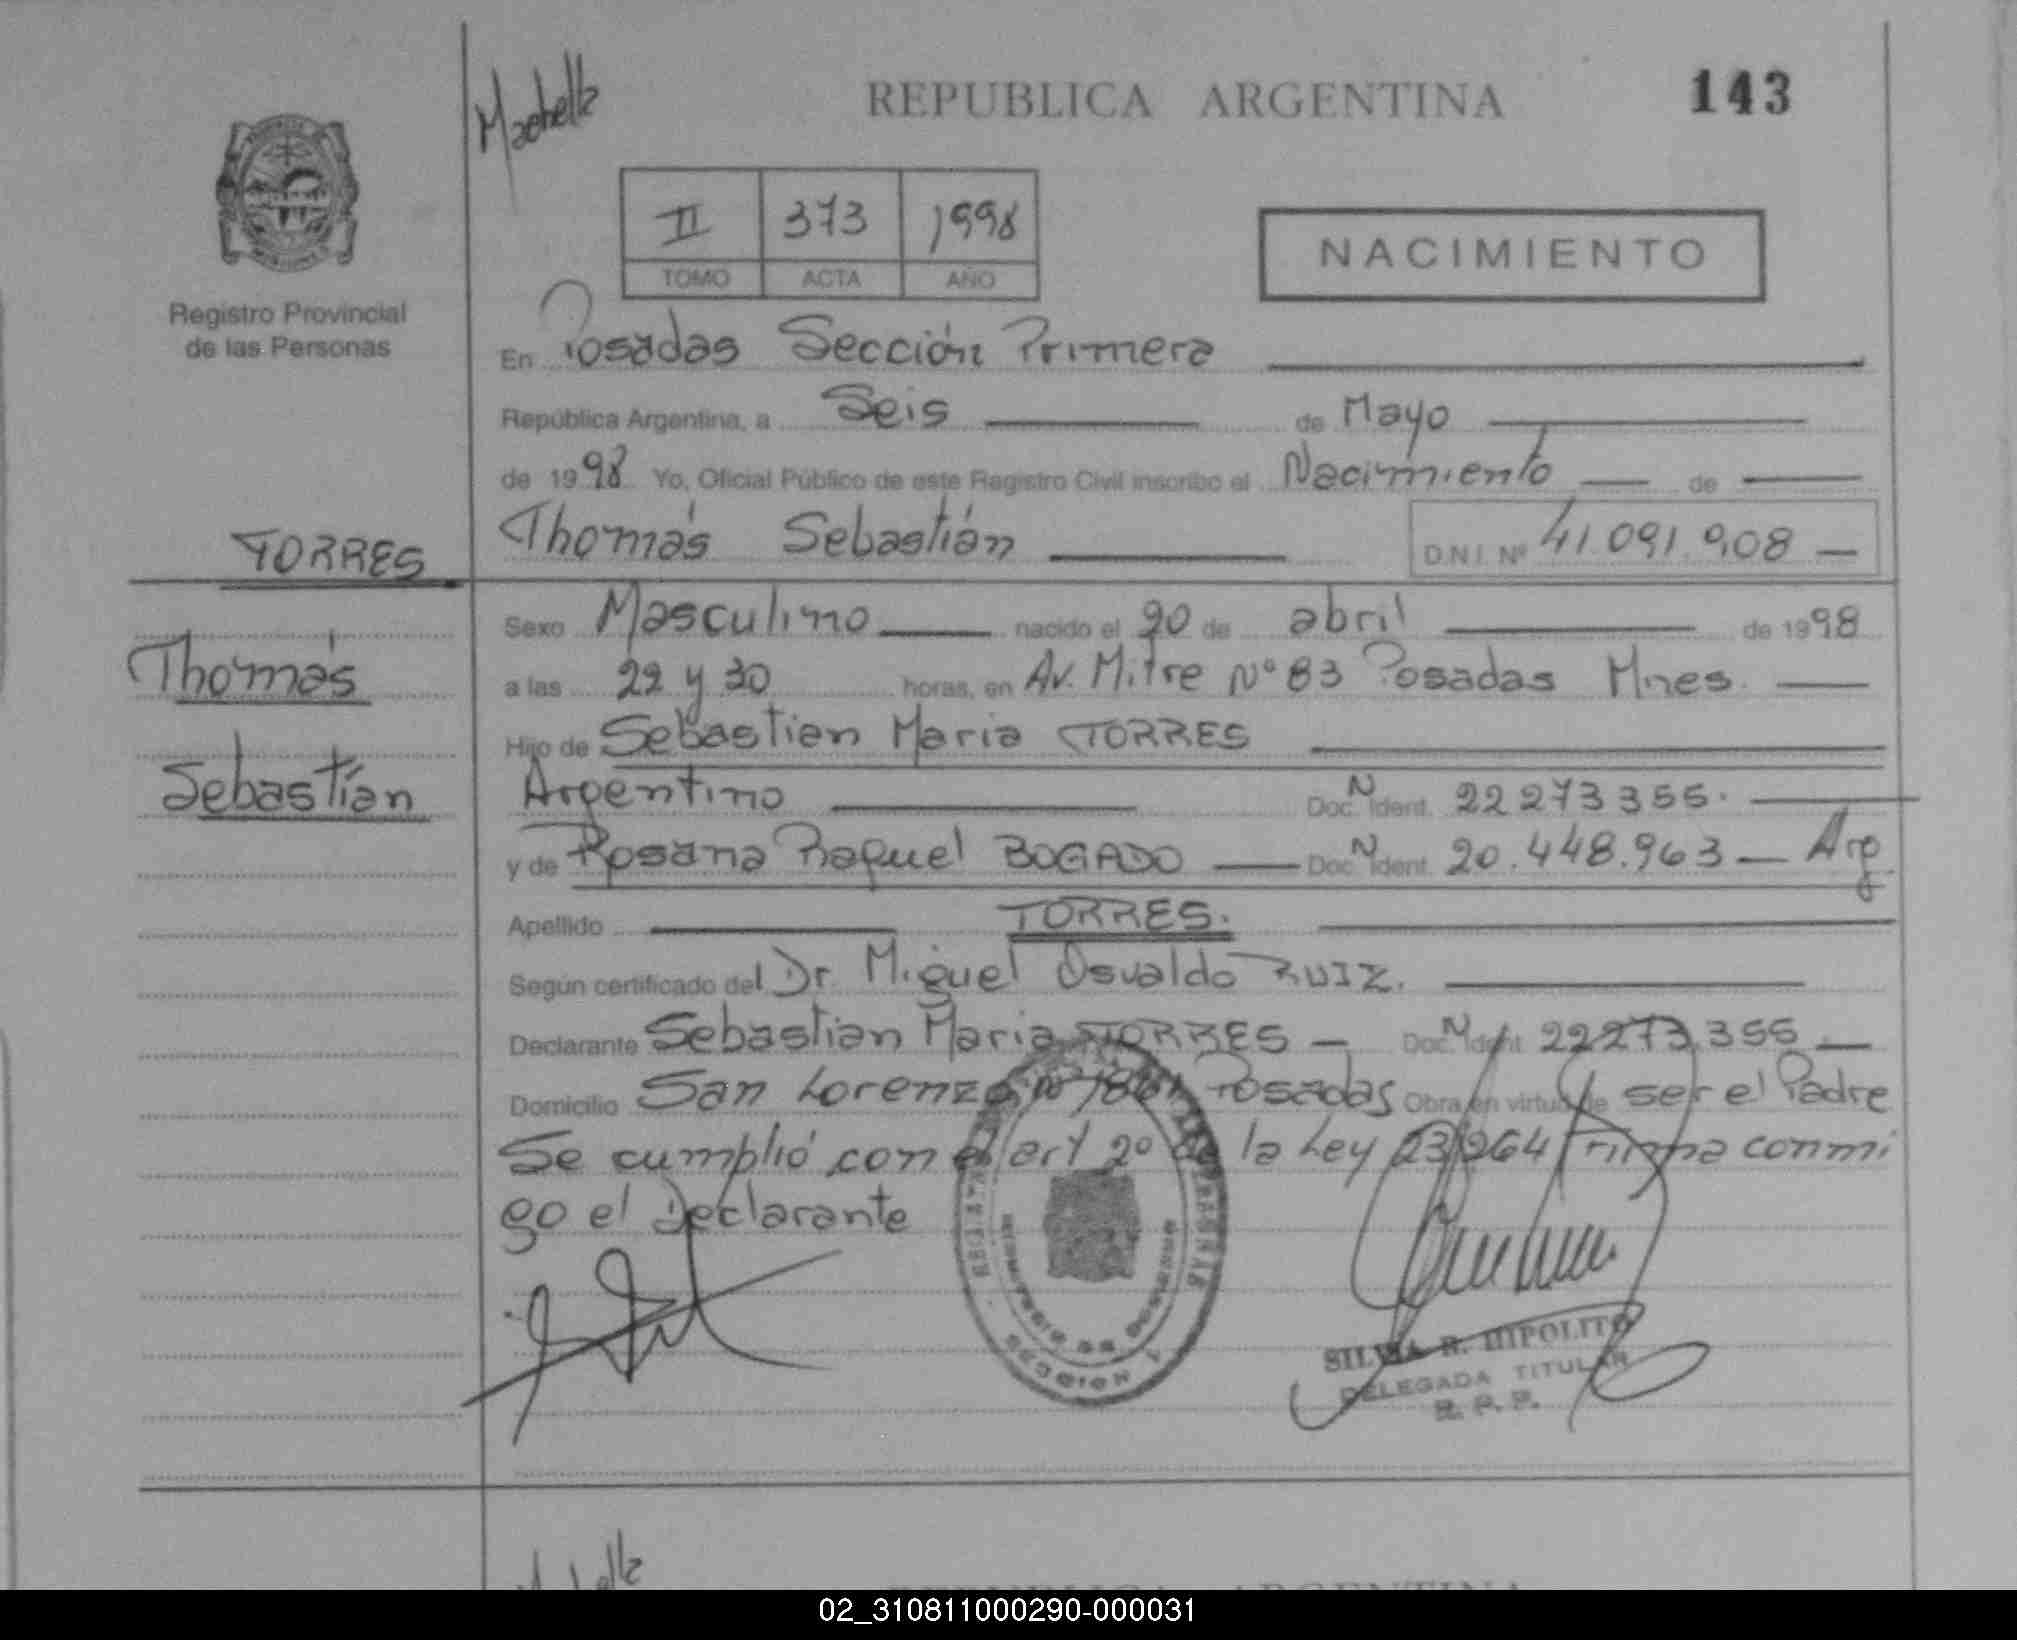 REPUBLICA ARGENTINA 143
II 373 1998
TOMO ACTA AÑO
NACIMIENTO
Registro Provincial
de las Personas
En Posadas Sección Primera
República Argentina, a Seis de Mayo
de 1998 Yo, Oficial Público de este Registro Civil inscribo el Nacimiento de
TORRES
Thomás Sebastián D.N.I. Nº 41.091.908
Sexo Masculino nacido el 20 de abril de 1998
Thomás
a las 22 y 30 horas, en Av. Mitre Nº 83 Posadas Mnes.
Hijo de Sebastian Maria TORRES
Sebastián
Argentino Doc. N Ident. 22 273 355.
y de Rosana Raquel BOGADO Doc. N Ident. 20.448.963 Arg
Apellido TORRES.
Según certificado del Dr. Miguel Osvaldo RUIZ.
Declarante Sebastian Maria TORRES Doc. N Ident 22273.355
Domicilio San Lorenzo Nº Posadas Obra en virtud de ser el Padre
Se cumplió con el art 2º de la Ley 23264 Firma conmi
go el Declarante
SECCION 1
SILVIA R. HIPOLITO
DELEGADA TITULAR
R. P. P.
02_310811000290-000031